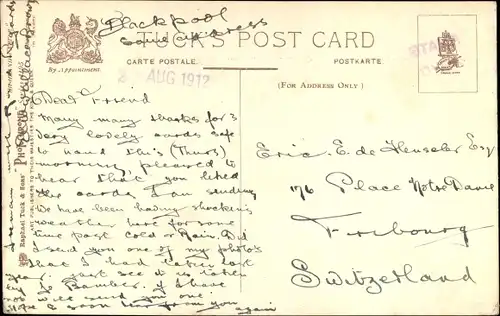 Blackpool
same address
TUCK'S POST CARD
By Appointment.
CARTE POSTALE.
POSTKARTE
(FOR ADDRESS ONLY)
AUG 1912
Dear Friend
Many many thanks for 3
very lovely cards safe
to hand this (Thurs)
morning pleased to
hear that you liked
the cards I am sending
We have been having shocking
weather here for some
time past cold & Rain. Did
I send you one of my photo's
that I had taken last
year. Just see it is taken
by Bamber. if I have
will send you one.
hope to soon hear from you
again
Eric. E. de Henseler Esq
176 Place Notre Dame
Fribourg
Switzerland
Raphael Tuck & Sons'